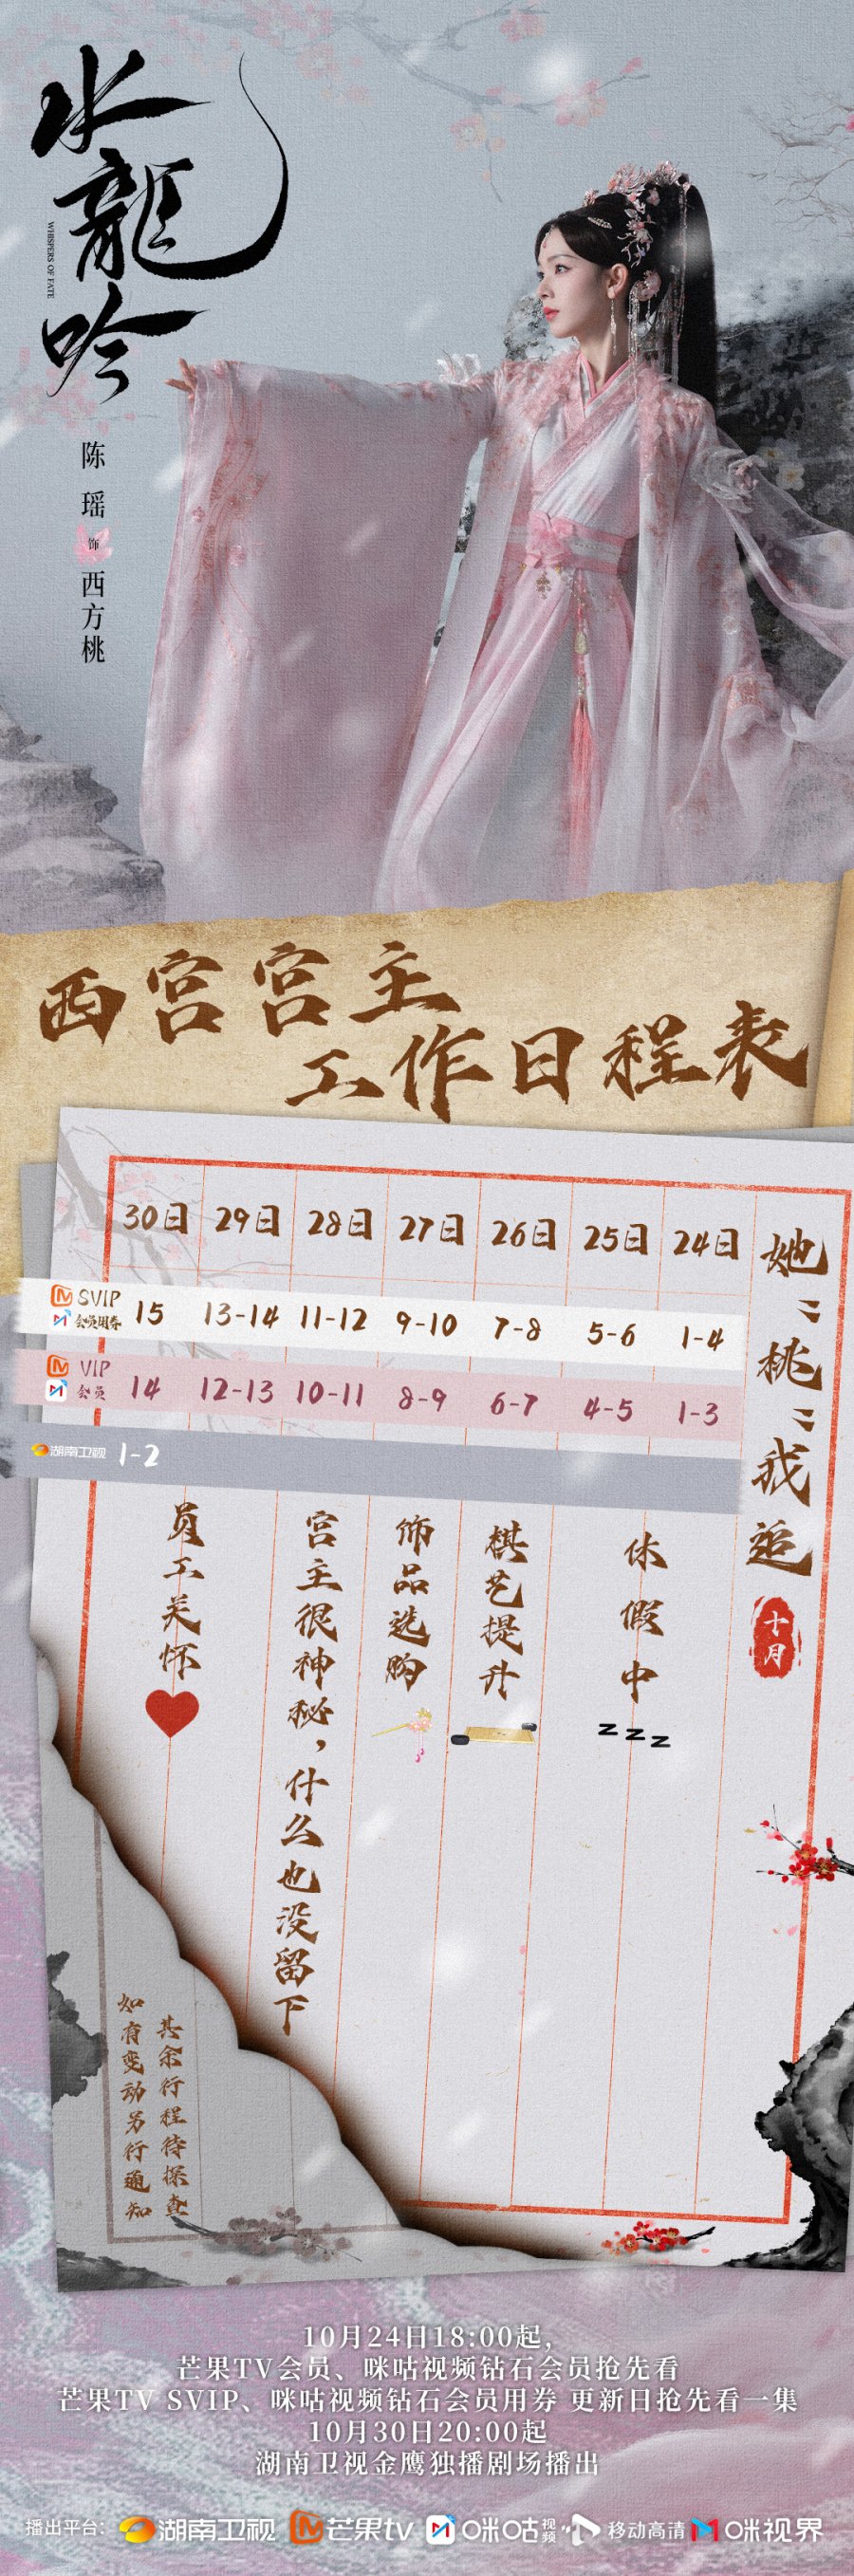 水龍吟
WHISPERS OF FATE
陈瑶
饰
西方桃
西宫宫主
工作日程表
30日 29日 28日 27日 26日 25日 24日
SVIP
会员用券
15 13-14 11-12 9-10 7-8 5-6 1-4
VIP
会员
14 12-13 10-11 8-9 6-7 4-5 1-3
湖南卫视 1-2
她:桃:我追
十月
休假中
zzz
棋艺提升
饰品选购
宫主很神秘，什么也没留下
员工关怀
其余行程待探查
如有变动另行通知
10月24日18:00起,
芒果TV会员、咪咕视频钻石会员抢先看
芒果TV SVIP、咪咕视频钻石会员用券 更新日抢先看一集
10月30日20:00起
湖南卫视金鹰独播剧场播出
播出平台: 湖南卫视 芒果tv 咪咕视频 移动高清 咪视界